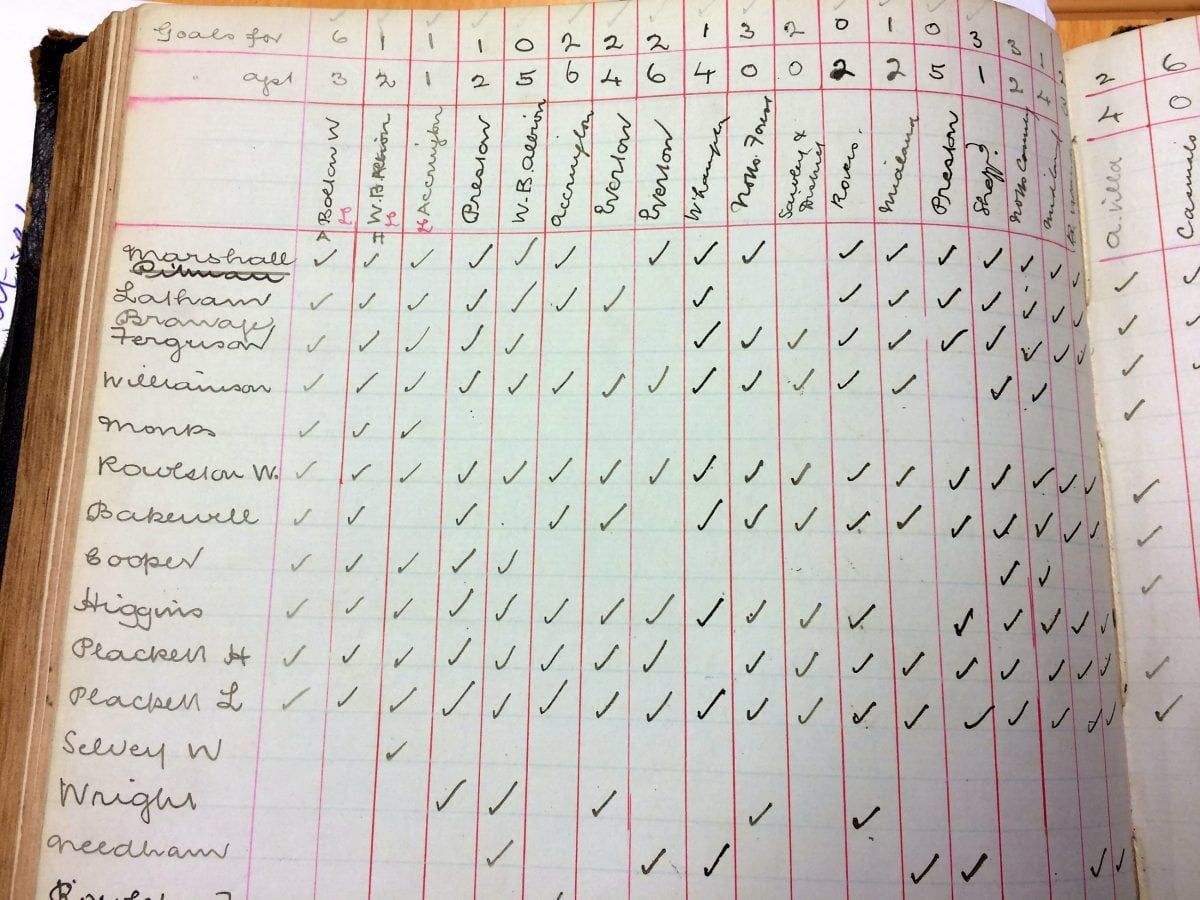 Goals for 6 1 1 1 0 2 2 2 1 3 2 0 1 0 3 3 1 2 6
" agst 3 2 1 2 5 6 4 6 4 0 0 2 2 5 1 2 4 0
Bolton W
W.B. Albion
Accrington
Preston
W.B. Albion
Accrington
Everton
Everton
W'hampton
Notts Forest
Sawley & District
Rovers
Midland
Preston
Sheff?
Notts County
Midland
A Villa
Casuals
Marshall ✓ ✓ ✓ ✓ ✓ ✓ ✓ ✓ ✓ ✓ ✓ ✓ ✓ ✓ ✓ ✓ ✓
Pitman
Latham ✓ ✓ ✓ ✓ ✓ ✓ ✓ ✓ ✓ ✓ ✓ ✓ ✓ ✓ ✓ ✓
Ferguson ✓ ✓ ✓ ✓ ✓ ✓ ✓ ✓ ✓ ✓ ✓ ✓ ✓ ✓ ✓ ✓
Williamson ✓ ✓ ✓ ✓ ✓ ✓ ✓ ✓ ✓ ✓ ✓ ✓ ✓ ✓ ✓ ✓
Monks ✓ ✓ ✓
Rowlston W. ✓ ✓ ✓ ✓ ✓ ✓ ✓ ✓ ✓ ✓ ✓ ✓ ✓ ✓ ✓ ✓ ✓ ✓ ✓
Bakewell ✓ ✓ ✓ ✓ ✓ ✓ ✓ ✓ ✓ ✓ ✓ ✓ ✓ ✓ ✓ ✓
Cooper ✓ ✓ ✓ ✓ ✓ ✓ ✓ ✓
Higgins ✓ ✓ ✓ ✓ ✓ ✓ ✓ ✓ ✓ ✓ ✓ ✓ ✓ ✓ ✓ ✓ ✓
Plackett H ✓ ✓ ✓ ✓ ✓ ✓ ✓ ✓ ✓ ✓ ✓ ✓ ✓ ✓ ✓ ✓ ✓ ✓
Plackett L ✓ ✓ ✓ ✓ ✓ ✓ ✓ ✓ ✓ ✓ ✓ ✓ ✓ ✓ ✓ ✓ ✓ ✓ ✓
Selvey W ✓
Wright ✓ ✓ ✓ ✓ ✓
Needham ✓ ✓ ✓ ✓ ✓ ✓ ✓